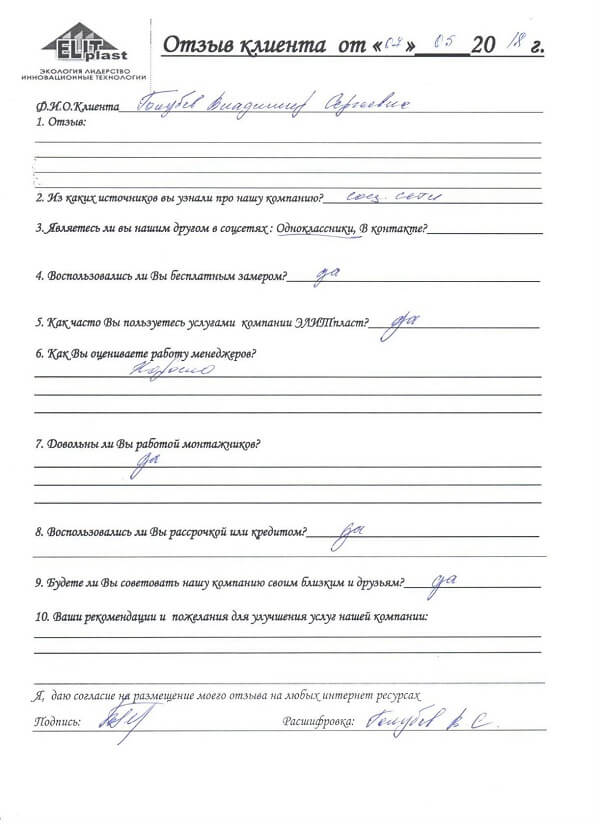 ELIT
plast
ЭКОЛОГИЯ ЛИДЕРСТВО
ИННОВАЦИОННЫЕ ТЕХНОЛОГИИ
Отзыв клиента от «07» 05 2018 г.
Ф.И.О.Клиента Голубев Владимир Сергеевич
1. Отзыв:
2. Из каких источников вы узнали про нашу компанию? соц. сети
3. Являетесь ли вы нашим другом в соцсетях : Одноклассники, В контакте?
4. Воспользовались ли Вы бесплатным замером? да
5. Как часто Вы пользуетесь услугами компании ЭЛИТпласт? да
6. Как Вы оцениваете работу менеджеров?
Хорошо
7. Довольны ли Вы работой монтажников?
да
8. Воспользовались ли Вы рассрочкой или кредитом? да
9. Будете ли Вы советовать нашу компанию своим близким и друзьям? да
10. Ваши рекомендации и пожелания для улучшения услуг нашей компании:
Я, даю согласие на размещение моего отзыва на любых интернет ресурсах
Подпись: Расшифровка: Голубев В С.